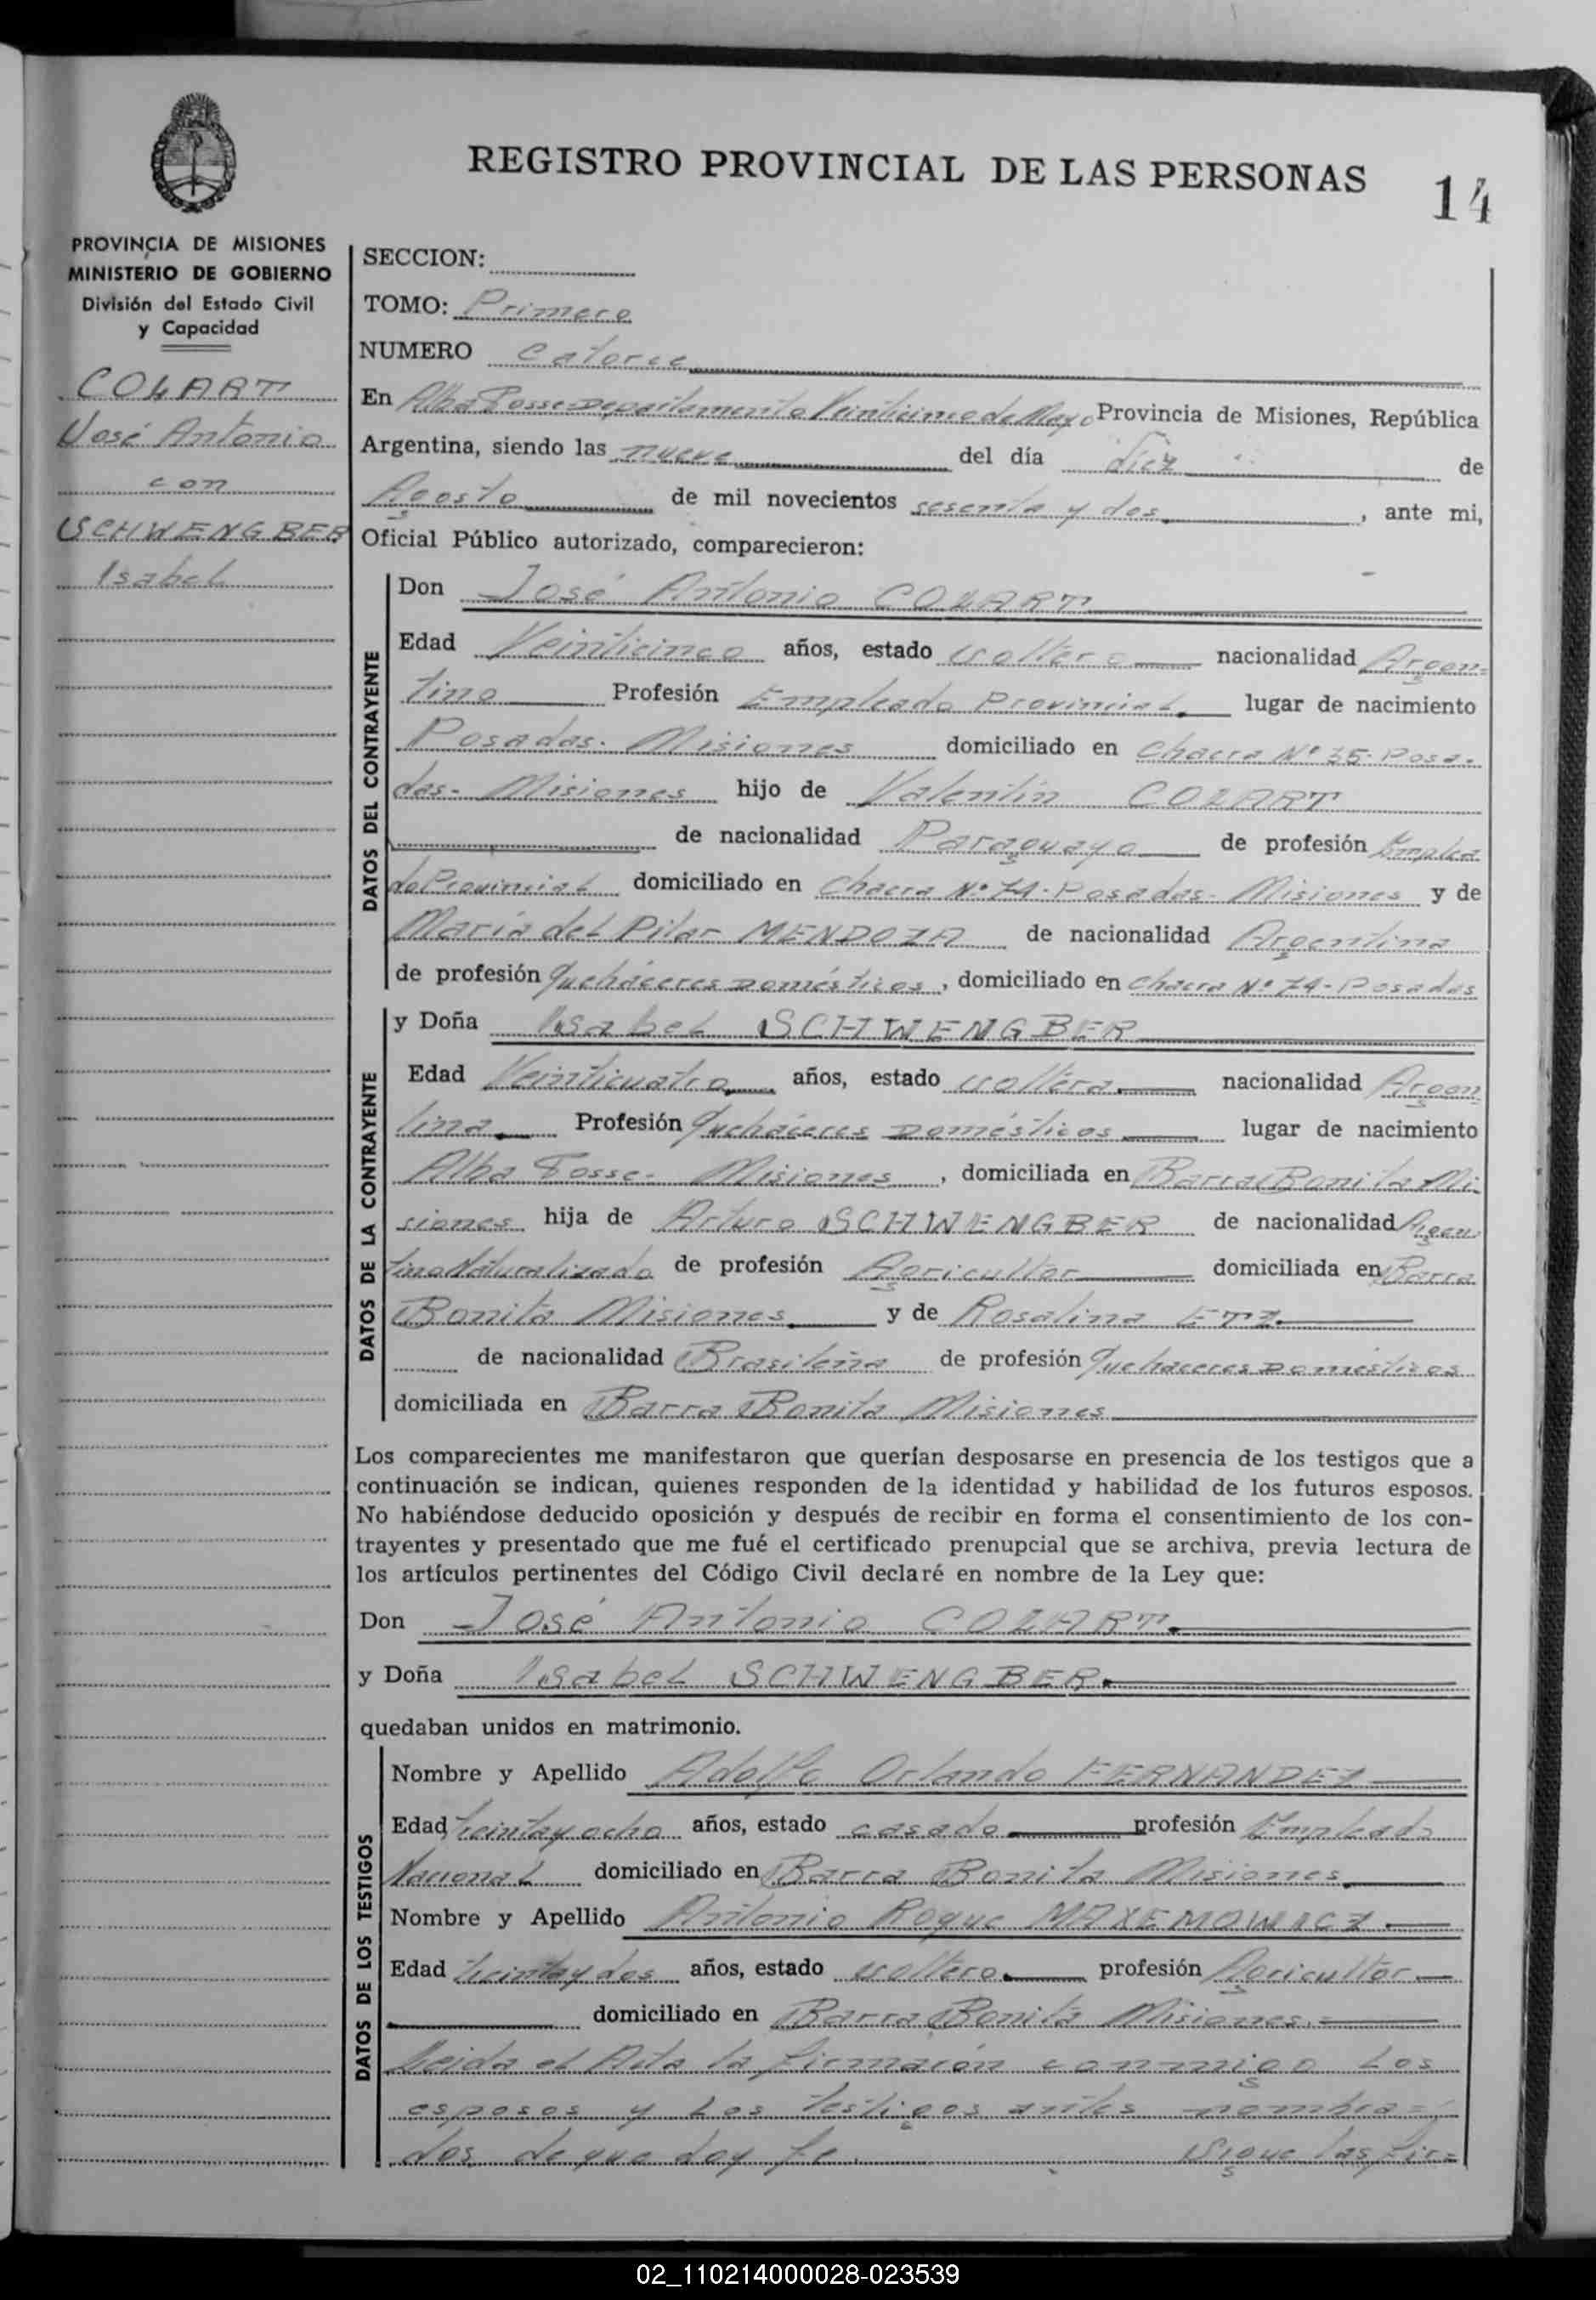 REGISTRO PROVINCIAL DE LAS PERSONAS
14
PROVINCIA DE MISIONES
MINISTERIO DE GOBIERNO
División del Estado Civil
y Capacidad
COLART
José Antonio
con
SCHWENGBER
Isabel
SECCION:
TOMO: Primero
NUMERO Catorce
En Alba Posse-Departamento Veinticinco de Mayo Provincia de Misiones, República
Argentina, siendo las nueve del día diez de
Agosto de mil novecientos sesenta y dos, ante mi,
Oficial Público autorizado, comparecieron:
DATOS DEL CONTRAYENTE
Don José Antonio COLART
Edad Veinticinco años, estado soltero nacionalidad Argen=
tino Profesión Empleado Provincial. lugar de nacimiento
Posadas. Misiones domiciliado en Chacra Nº 35-Posa-
das- Misiones hijo de Valentín COLART
de nacionalidad Paraguayo de profesión Emplea
do Provincial domiciliado en Chacra Nº 74-Posadas- Misiones y de
María del Pilar MENDOZA de nacionalidad Argentina
de profesión Quehaceres Domésticos, domiciliado en Chacra Nº 74-Posadas
DATOS DE LA CONTRAYENTE
y Doña Isabel SCHWENGBER
Edad Veinticuatro años, estado soltera. nacionalidad Argen
tina. Profesión Quehaceres Domésticos lugar de nacimiento
Alba Posse- Misiones, domiciliada en Barra Bonita Mi
siones hija de Arturo SCHWENGBER de nacionalidad Argen
tino Naturalizado de profesión Agricultor domiciliada en Barra
Bonita Misiones. y de Rosalina ETZ.
de nacionalidad Brasileña de profesión Quehaceres Domésticos
domiciliada en Barra Bonita Misiones
Los comparecientes me manifestaron que querían desposarse en presencia de los testigos que a
continuación se indican, quienes responden de la identidad y habilidad de los futuros esposos.
No habiéndose deducido oposición y después de recibir en forma el consentimiento de los con-
trayentes y presentado que me fué el certificado prenupcial que se archiva, previa lectura de
los artículos pertinentes del Código Civil declaré en nombre de la Ley que:
Don José Antonio COLART.
y Doña Isabel SCHWENGBER.
quedaban unidos en matrimonio.
DATOS DE LOS TESTIGOS
Nombre y Apellido Adolfo Orlando FERNANDEZ
Edad treintay ocho años, estado casado profesión Empleado
Nacional domiciliado en Barra Bonita Misiones.
Nombre y Apellido Antonio Roque MAXEMOWICZ.
Edad treintay dos años, estado soltero. profesión Agricultor
domiciliado en Barra Bonita Misiones.=
Leida el Acta la firmaron conmigo los
esposos y los testigos antes nombra=
dos de que doy fe. Sigue las fir=
02_110214000028-023539